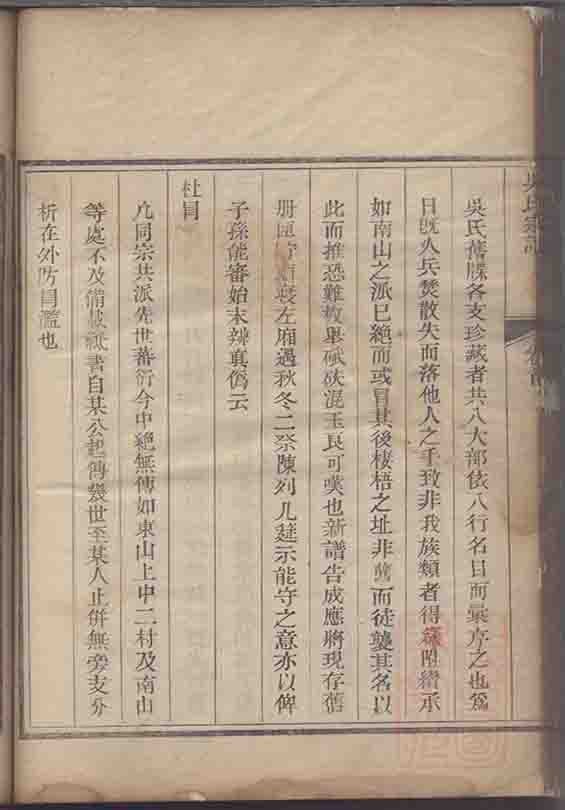 吳氏宗譜
吳氏舊牒各支珍藏者共八大部依八行名目而彙序之也爲
日旣久兵焚散失而落他人之手致非我族類者得竄附纘承
如南山之派已絕而或冒其後棲梧之址非舊而徒襲其名以
此而推恐難枚舉碔砆混玉良可嘆也新譜告成應將現存舊
册匣貯前寢左廂遇秋冬二祭陳列几筵示能守之意亦以俾
子孫能審始末辨真僞云
杜冒
凡同宗共派先世蕃衍今中絕無傳如東山上中二村及南山
等處不及備載祗書自某公起傳幾世至某人止併無旁支分
析在外防冒濫也